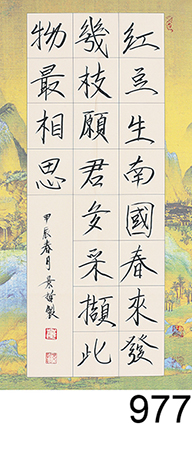 紅豆生南國春來發
幾枝願君多采擷此
物最相思
甲辰春月製
977